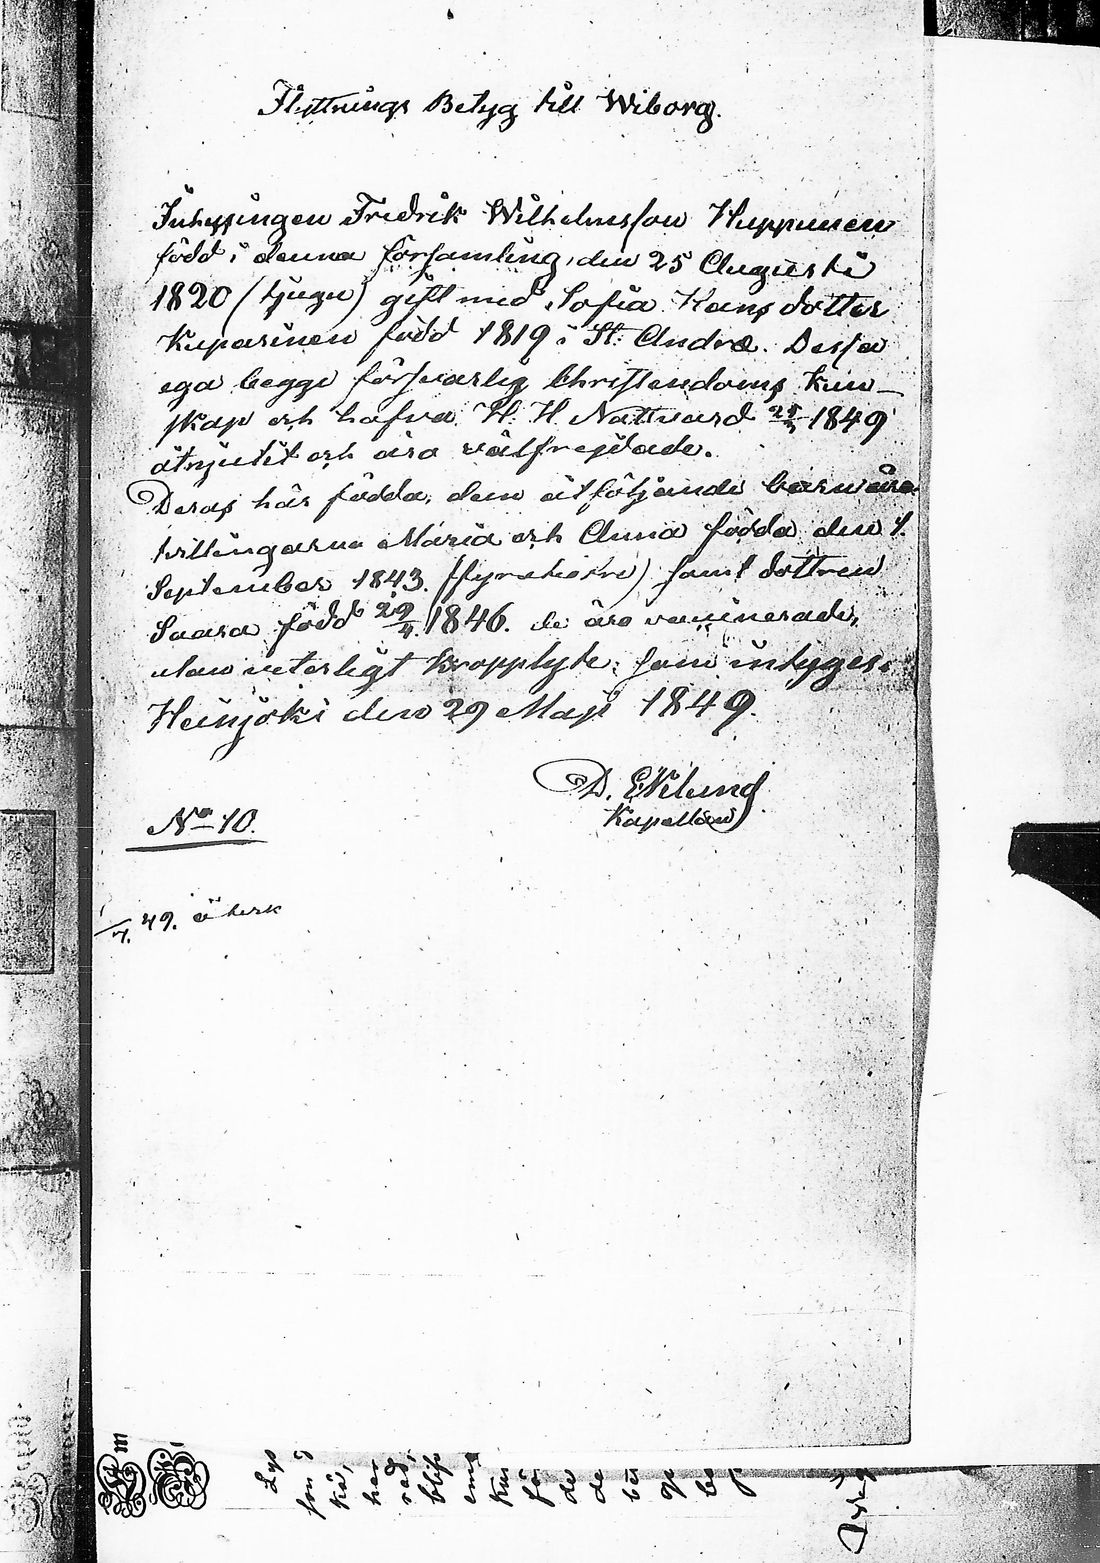 Flyttnings Betyg till Wiborg.
Inhysingen Fredrik Wilhelmsson Huppunen
född i denna församling, den 25 Augusti
1820 (tjugu) gift med Sofia Hansdotter
Kuparinen född 1819 i St. Andræ. Dessa
ega begge försvarlig Christendoms Kun-
skap och hafva H. H. Nattvard 1849
åtnjutit och äro välfrejdade.
Deras här födda, dem åtföljande barn äro
tvillingarna Maria och Anna födda den 1.
September 1843. (fyratiotre) samt dottren
Saara född 29/4 1846. de äro vaccinerade,
utan veterligt kropplyte; som intygas.
Heinjoki den 29 Maji 1849.
D. Eklund
Kapellan
No 10.
1/7. 49.